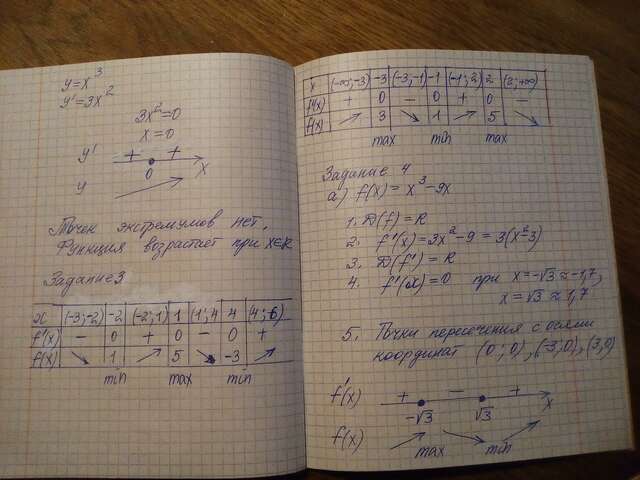 y=x³
y'=3x²
3x²=0
x=0
y' + + x
0
y
Точек экстремумов нет.
Функция возрастает при x∈R
Задание 3
x (-3;-2) -2 (-2;1) 1 (1;4 4 (4;6)
f'(x) − 0 + 0 − 0 +
f(x) ↘ 1 ↗ 5 ↘ -3 ↗
min max min
x (-∞;-3) -3 (-3;-1) -1 (-1;2) 2 (2;+∞)
f'(x) + 0 − 0 + 0 −
f(x) ↗ 3 ↘ 1 ↗ 5 ↘
max min max
Задание 4
а) f(x) = x³-9x
1. D(f) = R
2. f'(x) = 3x²-9 = 3(x²-3)
3. D(f') = R
4. f'(x)=0 при x=-√3≈-1,7,
x=√3≈1,7
5. Точки пересечения с осями
координат (0;0),(-3;0),(3;0)
f'(x) + − + x
-√3 √3
f(x) ↗ ↘ ↗
max min